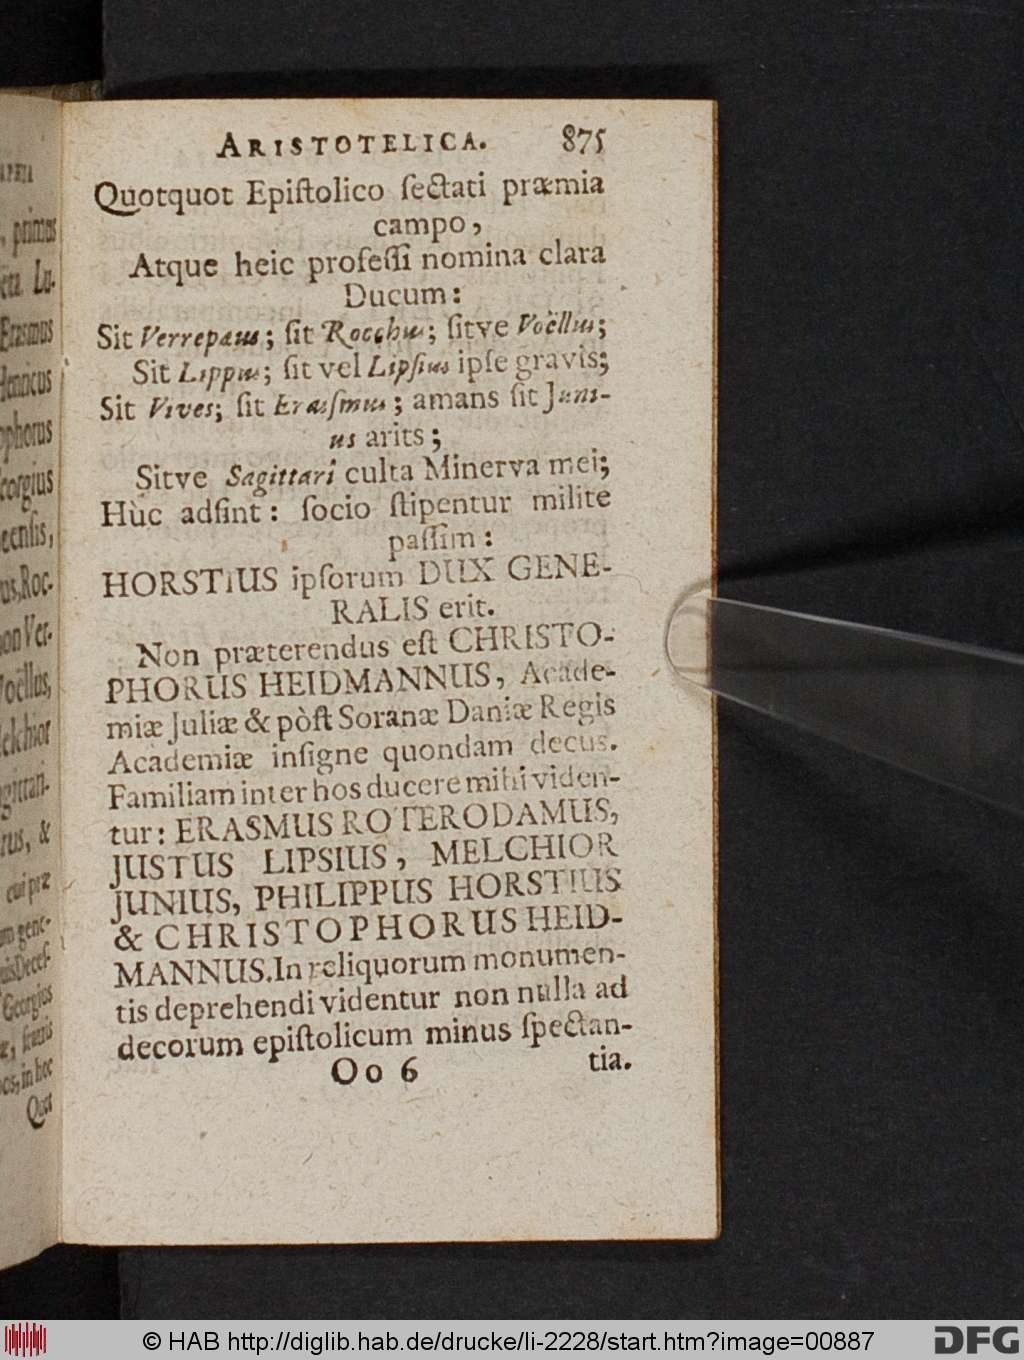 ARISTOTELICA. 875
Quotquot Epiſtolico ſectati præmia
campo,
Atque heic profeſſi nomina clara
Ducum:
Sit Verrepæus; ſit Rocchus; ſitve Voëllus;
Sit Lippius; ſit vel Lipſius ipſe gravis;
Sit Vives; ſit Eraſmus; amans ſit Juni-
us arits;
Sitve Sagittarî culta Minerva mei;
Hùc adſint: ſocio ſtipentur milite
paſſim:
HORSTIUS ipſorum DUX GENE-
RALIS erit.
Non præterendus eſt CHRISTO-
PHORUS HEIDMANNUS, Acade-
miæ Juliæ & pòſt Soranæ Daniæ Regis
Academiæ inſigne quondam decus.
Familiam inter hos ducere mihi viden-
tur: ERASMUS ROTERODAMUS,
JUSTUS LIPSIUS, MELCHIOR
JUNIUS, PHILIPPUS HORSTIUS
& CHRISTOPHORUS HEID-
MANNUS. In reliquorum monumen-
tis deprehendi videntur non nulla ad
decorum epiſtolicum minus ſpectan-
Oo 6 tia.
, primus
Lu-
Erasmus
Henricus
ophorus
Georgius
ecnſis,
us, Roc-
on Ver-
Voëllus,
elchior
gittari-
rus, &
cui præ
gene-
Deceſ-
Georgius
in hec
Quot
© HAB http://diglib.hab.de/drucke/li-2228/start.htm?image=00887
DFG